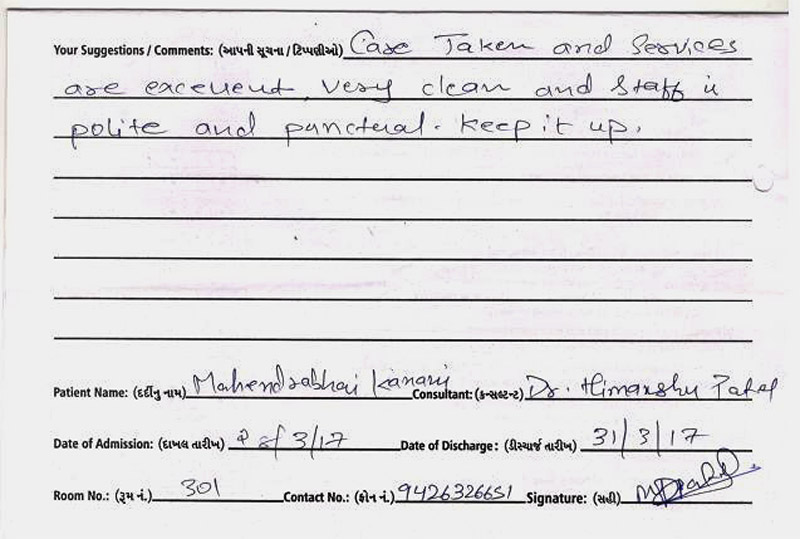 Your Suggestions / Comments: (આપની સૂચના / ટિપ્પણીઓ) Case Taken and Services
are excellent, very clean and staff is
polite and punctural. Keep it up.
Patient Name: (દર્દીનુ નામ) Mahendrabhai Consultant: (કન્સલ્ટન્ટ) Dr. Himanshu Patel
Date of Admission: (દાખલ તારીખ) 3/17 Date of Discharge: (ડીસ્ચાર્જ તારીખ) 31/3/17
Room No.: (રૂમ નં.) 301 Contact No.: (ફોન નં.) 9426326651 Signature: (સહી)